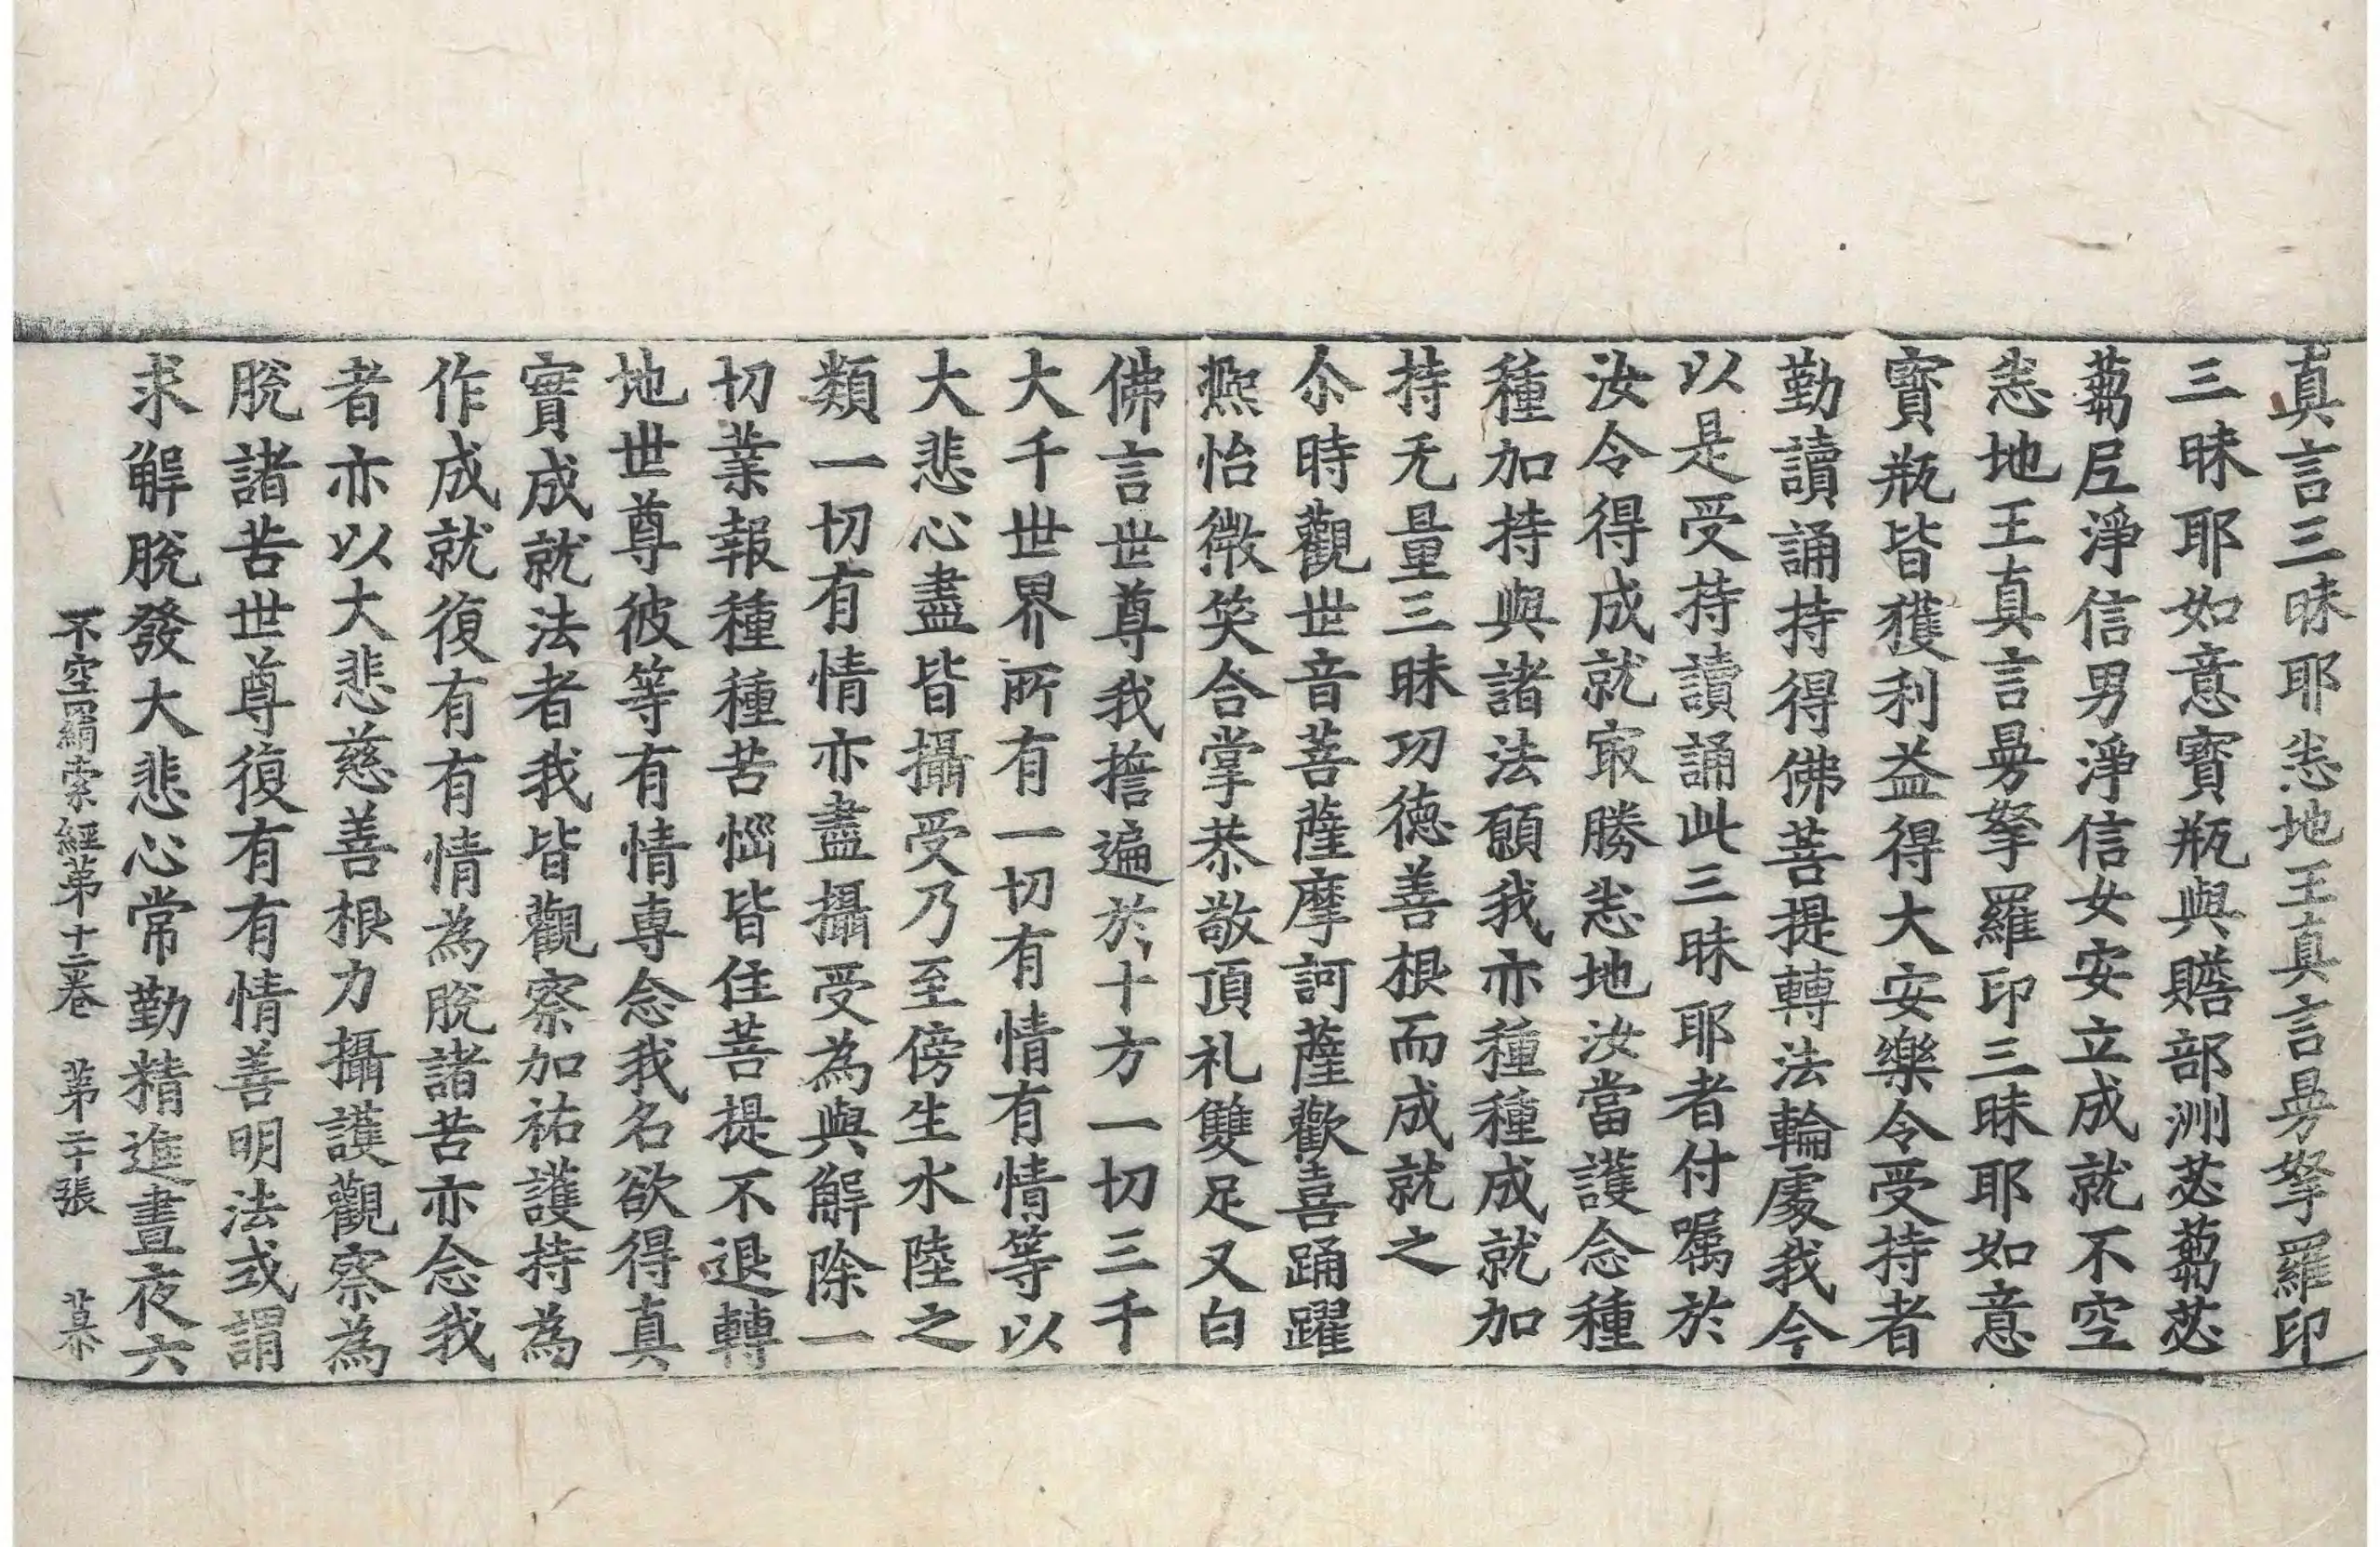 真言三昧耶悉地王真言㬅拏羅印
三昧耶如意寶瓶與贍部洲苾蒭苾
蒭尼淨信男淨信女安立成就不空
悉地王真言㬅拏羅印三昧耶如意
寶瓶皆獲利益得大安樂令受持者
勤讀誦持得佛菩提轉法輪處我今
以是受持讀誦此三昧耶者付囑於
汝令得成就㝡勝悉地汝當護念種
種加持與諸法願我亦種種成就加
持无量三昧功德善根而成就之
尒時觀世音菩薩摩訶薩歡喜踊躍
熈怡微笑合掌恭敬頂礼雙足又白
佛言世尊我擔遍於十方一切三千
大千世界所有一切有情有情等以
大悲心盡皆攝受乃至傍生水陸之
類一切有情亦盡攝受為與解除一
切業報種種苦惱皆住菩提不退轉
地世尊彼等有情専念我名欲得真
實成就法者我皆觀察加祐護持為
作成就復有有情為脫諸苦亦念我
者亦以大悲慈善根力攝護觀察為
脫諸苦世尊復有有情善明法或謂
求解脫發大悲心常勤精進晝夜六
不空羂索經第十二卷 第二十張 慕